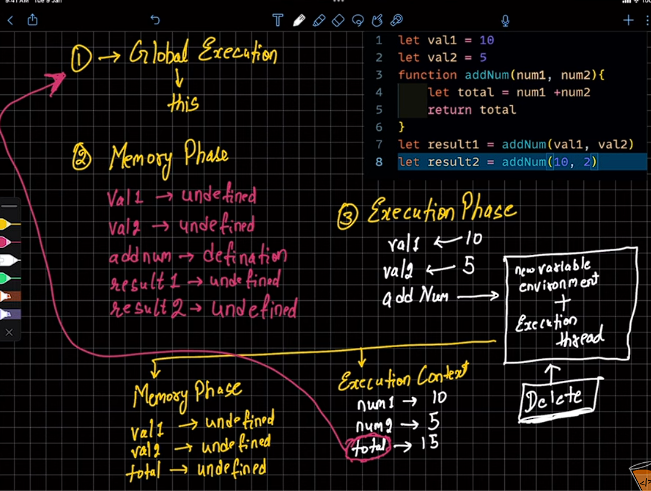 ① → Global Execution
↓
this
② Memory Phase
Val1 → undefined
val2 → undefined
addnum → defination
result1 → undefined
result2 → undefined
1 let val1 = 10
2 let val2 = 5
3 function addNum(num1, num2){
4 let total = num1 +num2
5 return total
6 }
7 let result1 = addNum(val1, val2)
8 let result2 = addNum(10, 2)
③ Execution Phase
val1 ← 10
val2 ← 5
add Num →
new variable
environment
+
Execution
thread
Delete
Memory Phase
val1 → undefined
val2 → undefined
total → undefined
Execution Context
num1 → 10
num2 → 5
total → 15